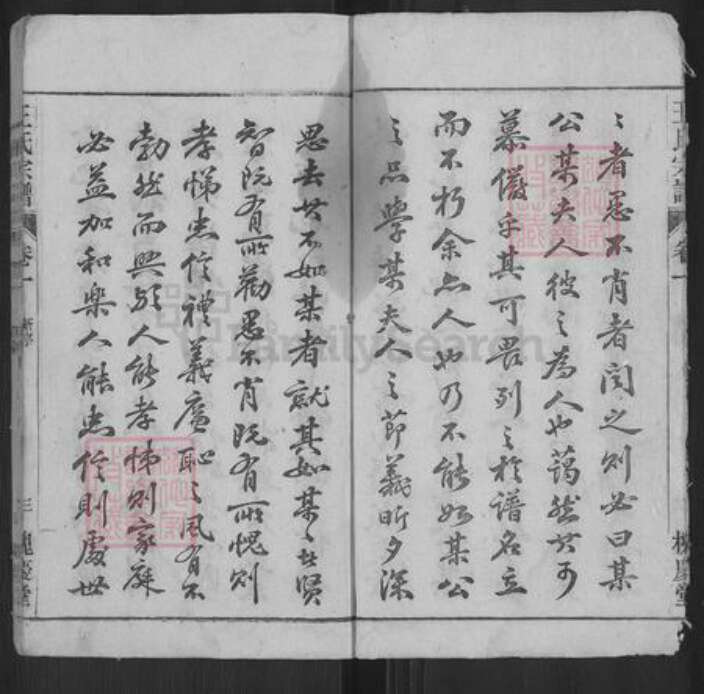 之者愚不肖者闻之则必曰某
公某夫人彼之為人也藹然其可
慕儼乎其可畏列之於譜名立
而不朽余亦人也乃不能如某公
之品學某夫人之節義昕夕深
思去其不如某者就其如某之者賢
智既有所勸愚不肖既有所愧則
孝悌忠信禮義廉恥之風有不
勃然而興歟人能孝悌則家庭
必益加和樂人能忠信則處世
王氏宗譜
卷一
三
槐慶堂
FamilySearch